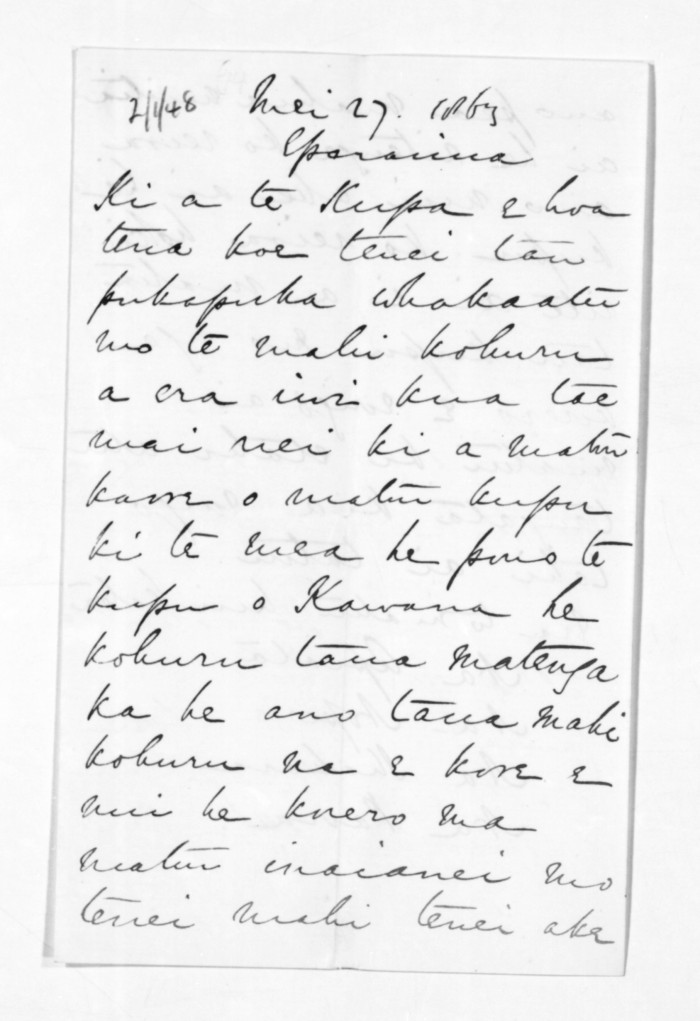 2/1/48 Mei 27. 1863
Eparaima
Ki a te Kupa e hoa
tena koe tenei tau
pukapuka whakaatu
mo te mahi kohuru
a era iwi kua tae
mai nei ki a matu
kaore o matu kupu
ki te mea he pono te
kupu o Kawana he
kohuru taua matenga
ka he ano taua mahi
kohuru na e kore e
nui he korero ma
matu inaianei mo
tenei mahi tenei ake